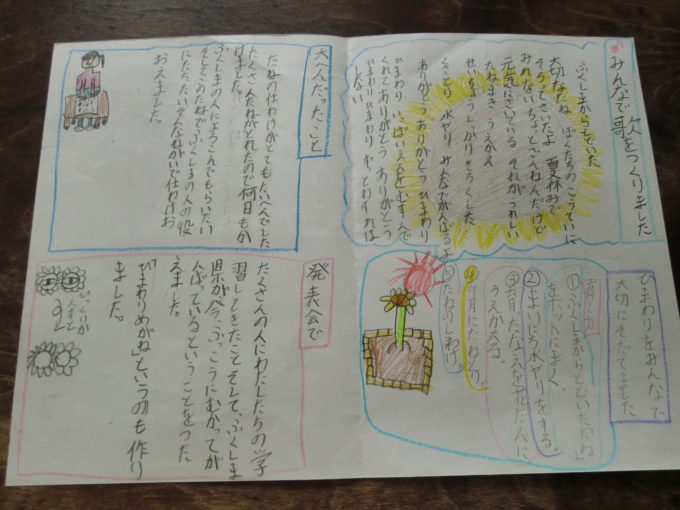 みんなで歌をつくりました
ふくしまからとどいた
大切なたね ぼくたちのこうていに
そろってさいたよ 夏休み
みれないちょっとざんねんだけど
元気にさいている それがうれしい
たねまき うえかえ
せいそうしっかり
くさとり 水ヤリ みんなでがんばるよ
ありがとう ありがとう ひまわり
ひまわり いっぱいえがおをむすんで
くれてありがとう ありがとう
ひまわり ひまわり ずっとわすれは
しない
ひまわりをみんなで
大切にそだてました
育て方
①ふくしまからとどいたたね
をポットにまく。
②まいにち水ヤリをする。
③ 月、なえを花だんに
うえかえる。
④ 月にたねとり。
⑤たねのしわけ。
大へんだったこと
たねの仕わけがとてもたいへんでした
たくさんたねがとれたので何日もか
けました。
ふくしまの人によろこんでもらいたい
そしてこのたねで、ふくしまの人の役
にたちたい、そんなねがいで仕わけお
おえました。
発表会で
たくさんの人にわたしたちの学
習してきたこと そして、ふくしま
県が今、ふっこうにむかってが
んばっているということをつた
えました。
「ひまわりめがね」というのも作り
ました。